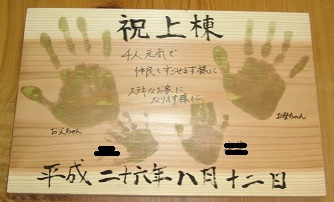 祝上棟
4人元気で
仲良くすごせます様に
ステキなお家に
なります様に
お父ちゃん
お母ちゃん
平成二十六年八月十二日